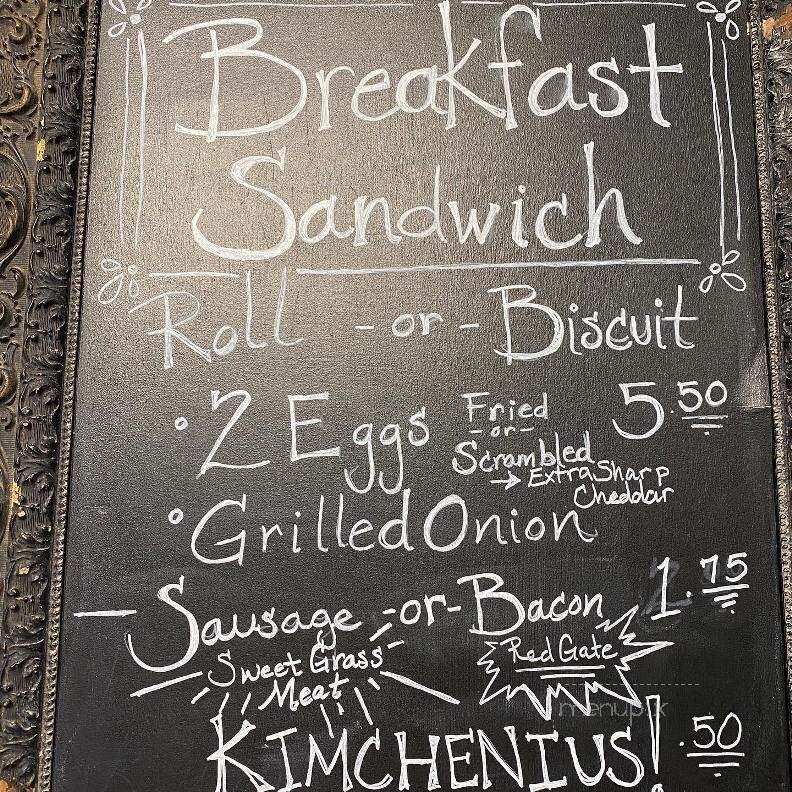 Breakfast
Sandwich
Roll - or - Biscuit
° 2 Eggs Fried - or - Scrambled 5.50
→ Extra Sharp Cheddar
° Grilled Onion
— Sausage - or - Bacon 1.75
Sweet Grass Meat Red Gate
menupix
KIMCHENIUS! .50